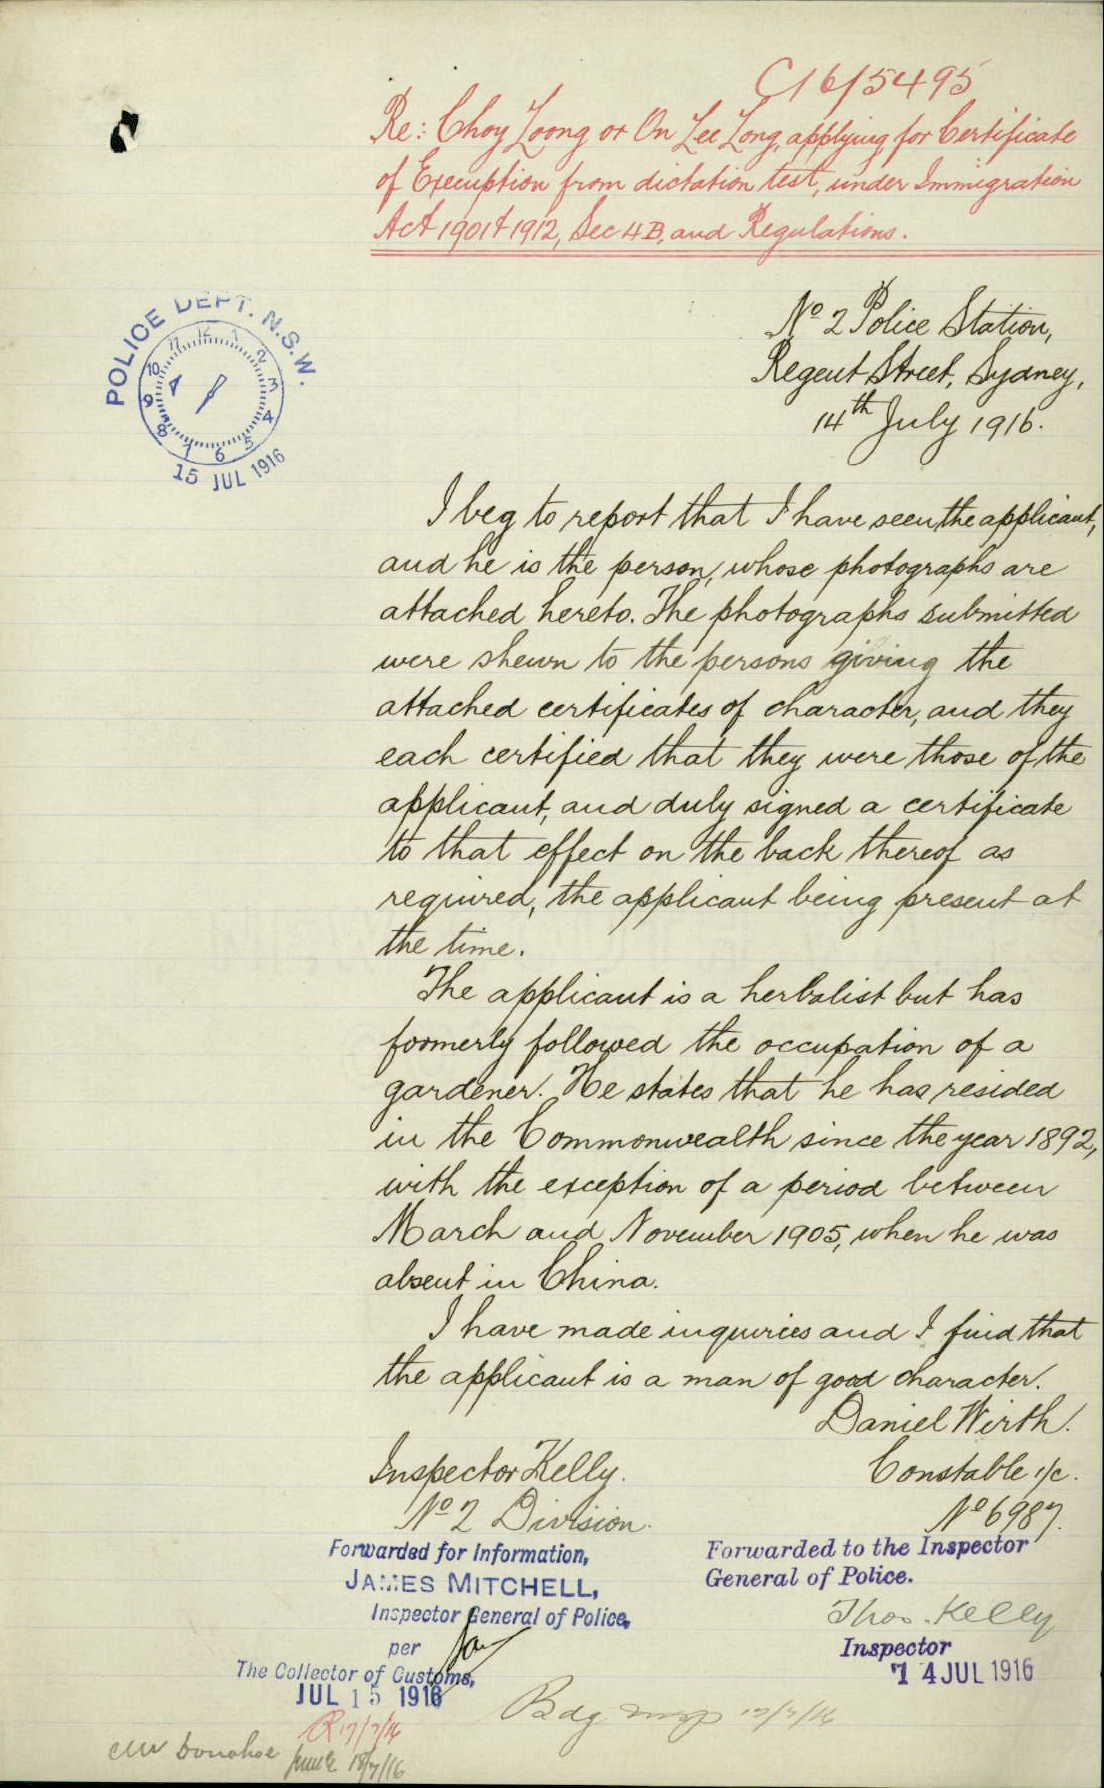 C16/5495
Re:- Choy Loong or On Lee Long, applying for Certificate
of Exemption from dictation test, under Immigration
Act 1901 & 1912, Sec 4B, and Regulations.
No 2 Police Station,
Regent Street, Sydney,
14th July 1916.
POLICE DEPT. N.S.W.
12 1 2 3 4 5 6 7 8 9 10 11
A
15 JUL 1916
I beg to report that I have seen the applicant,
and he is the person, whose photographs are
attached hereto. The photographs submitted
were shewn to the persons giving the
attached certificates of character, and they
each certified that they were those of the
applicant, and duly signed a certificate
to that effect on the back thereof as
required, the applicant being present at
the time.
The applicant is a herbalist but has
formerly followed the occupation of a
gardener. He states that he has resided
in the Commonwealth since the year 1892,
with the exception of a period between
March and November 1905, when he was
absent in China.
I have made inquiries and I find that
the applicant is a man of good character.
Daniel Wirth.
Constable 1/c.
No 6987.
Inspector Kelly.
No 2 Division.
Forwarded for Information,
JAMES MITCHELL,
Inspector General of Police,
per
The Collector of Customs,
JUL 15 1916
Forwarded to the Inspector
General of Police.
Thos. Kelly
Inspector
14 JUL 1916
17/7/16
Donohoe
18/7/16